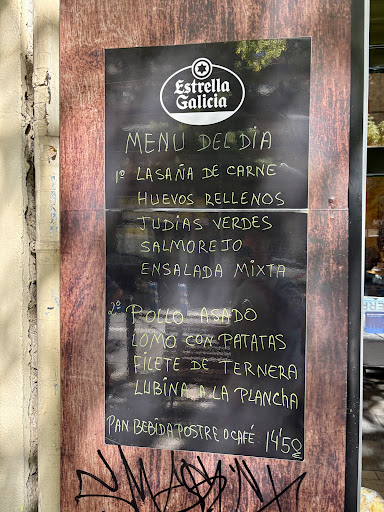 Estrella
Galicia
MENU DEL DIA
1º LASAÑA DE CARNE
HUEVOS RELLENOS
JUDIAS VERDES
SALMOREJO
ENSALADA MIXTA
2º POLLO ASADO
LOMO CON PATATAS
FILETE DE TERNERA
LUBINA A LA PLANCHA
PAN BEBIDA POSTRE O CAFÉ 14'50